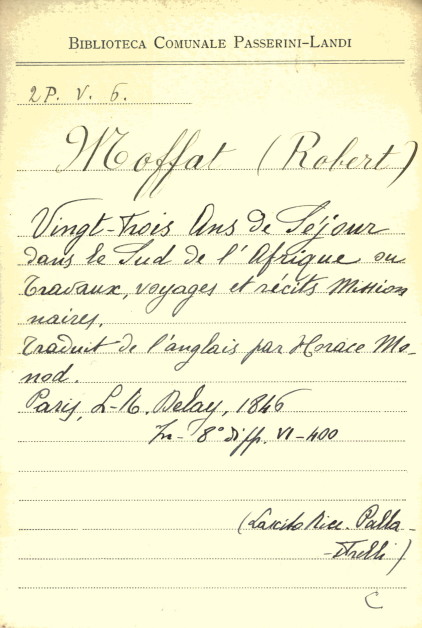 BIBLIOTECA COMUNALE PASSERINI-LANDI
2P. V. 6.
Moffat (Robert)
Vingt-trois Ans de Séjour
dans le Sud de l'Afrique ou
Travaux, voyages et récits Mission
naires.
Traduit de l'anglais par Horace Mo-
nod.
Paris, L-R. Delay, 1846
In-8° di pp. VI-400
(Lascito Ricc. Palla-
-strelli)
C